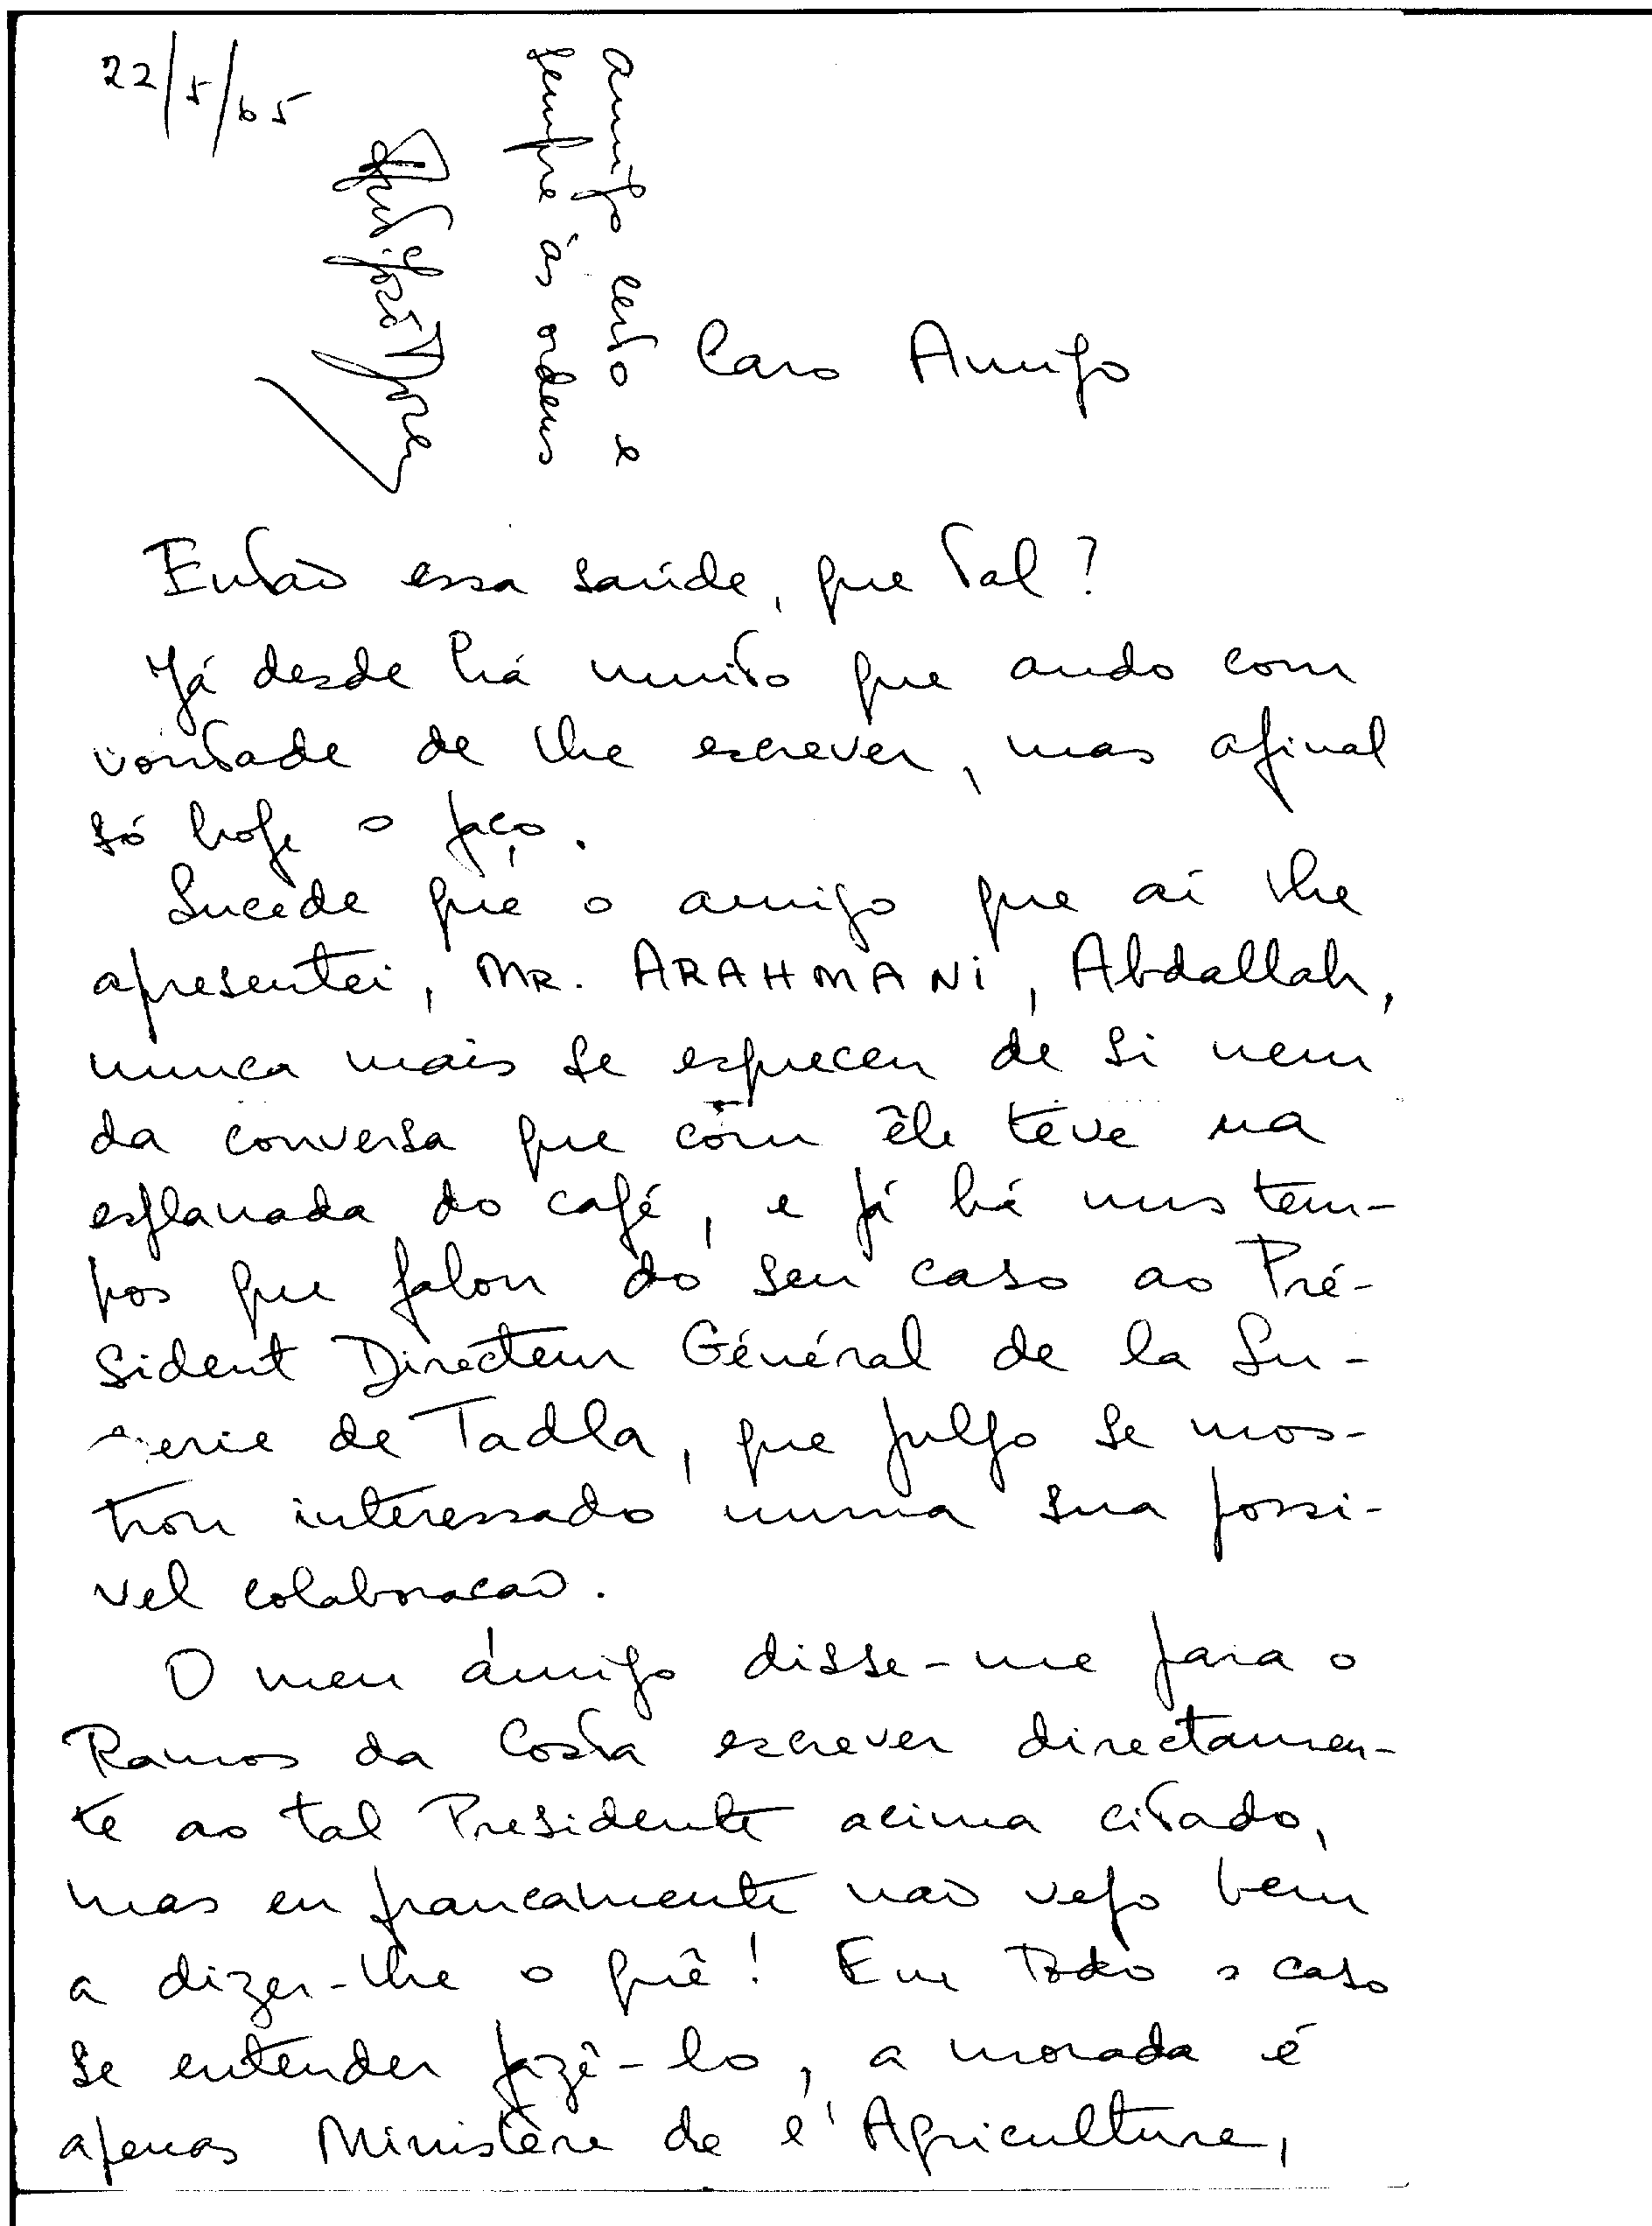 22/5/65
amigo certo e
sempre às ordens
Caro Amigo
Então essa saúde, que tal?
Já desde há muito que ando com
vontade de lhe escrever, mas afinal
só hoje o faço.
Sucede que o amigo que aí lhe
apresentei, MR. ARAHMANi, Abdallah,
nunca mais se esqueceu de si nem
da conversa que com êle teve na
esplanada do café, e já há uns tem-
pos que falou do seu caso ao Pré-
sident Directeur Général de la Su-
crerie de Tadla, que julgo se mos-
trou interessado numa sua possi-
vel colaboração.
O meu amigo disse-me para o
Ramos da Costa escrever directamen-
te ao tal Presidente acima citado,
mas eu francamente não vejo bem
a dizer-lhe o quê! Em todo o caso
se entender fazê-lo, a morada é
apenas Ministère de l'Agriculture,